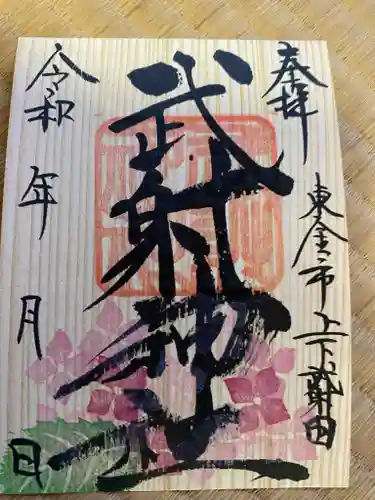 奉拝
東金市上武射田
武射神社
令和 年 月 日